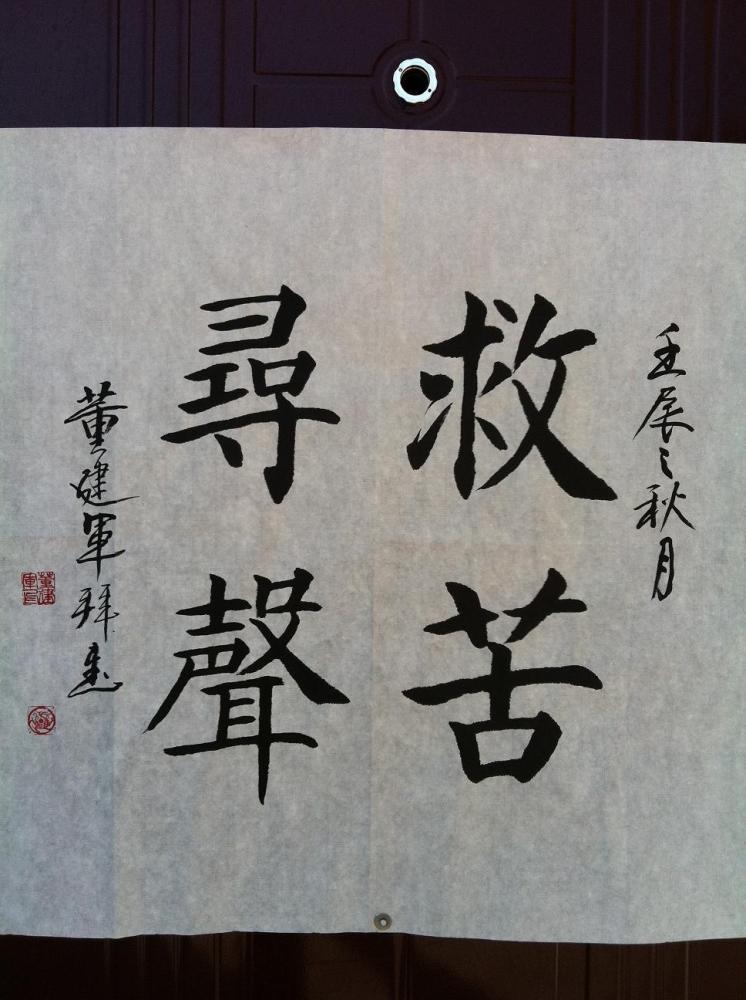 壬辰之秋月
救苦
尋聲
董健軍拜書